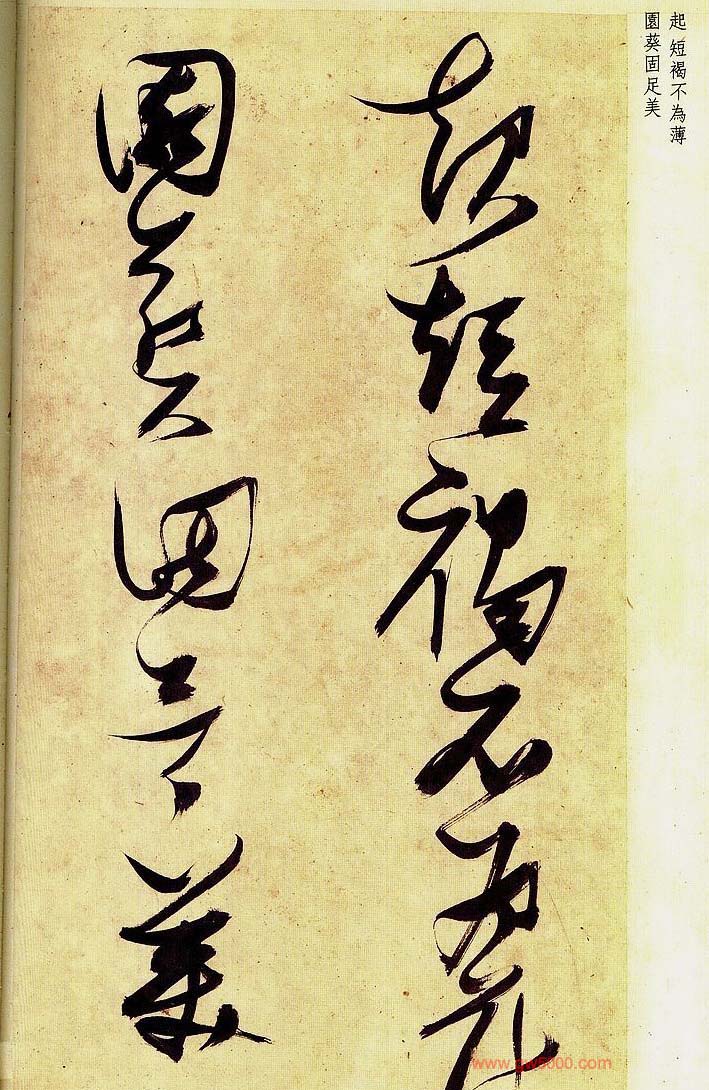 起 短褐不為薄
園葵固足美
起短褐不為薄
園葵固足美